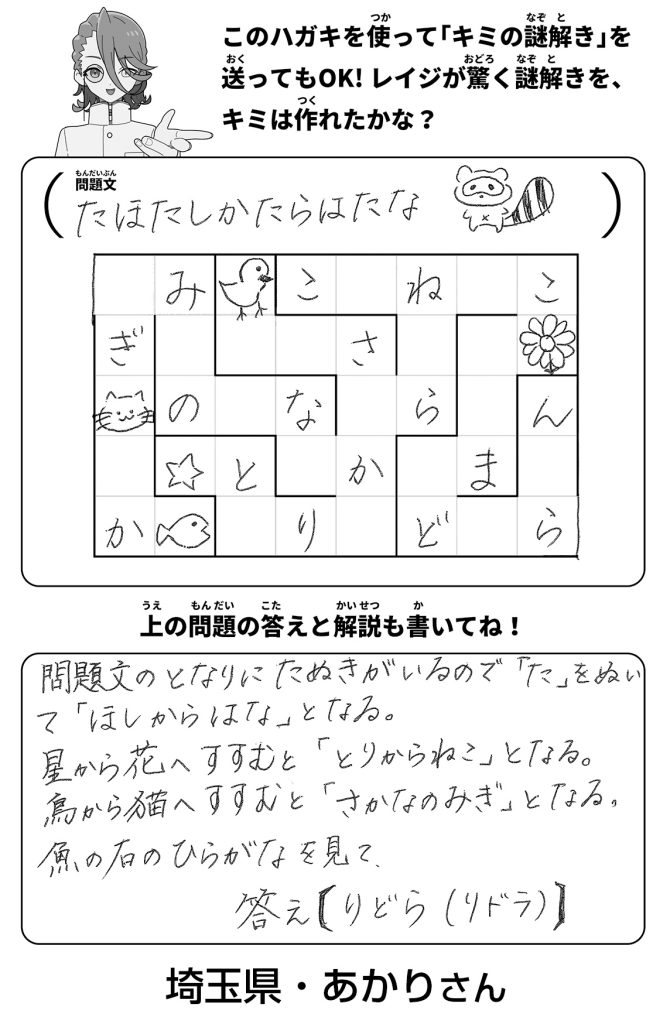 このハガキを使って「キミの謎解き」を
送ってもOK! レイジが驚く謎解きを、
キミは作れたかな？
問題文
たほたしかたらはたな
みこねこ
ぎさ
のならん
とかま
かりどら
上の問題の答えと解説も書いてね！
問題文のとなりにたぬきがいるので「た」をぬい
て「ほしからはな」となる。
星から花へすすむと「とりからねこ」となる。
鳥から猫へすすむと「さかなのみぎ」となる。
魚の右のひらがなを見て、
答え【りどら（リドラ）】
埼玉県・あかりさん